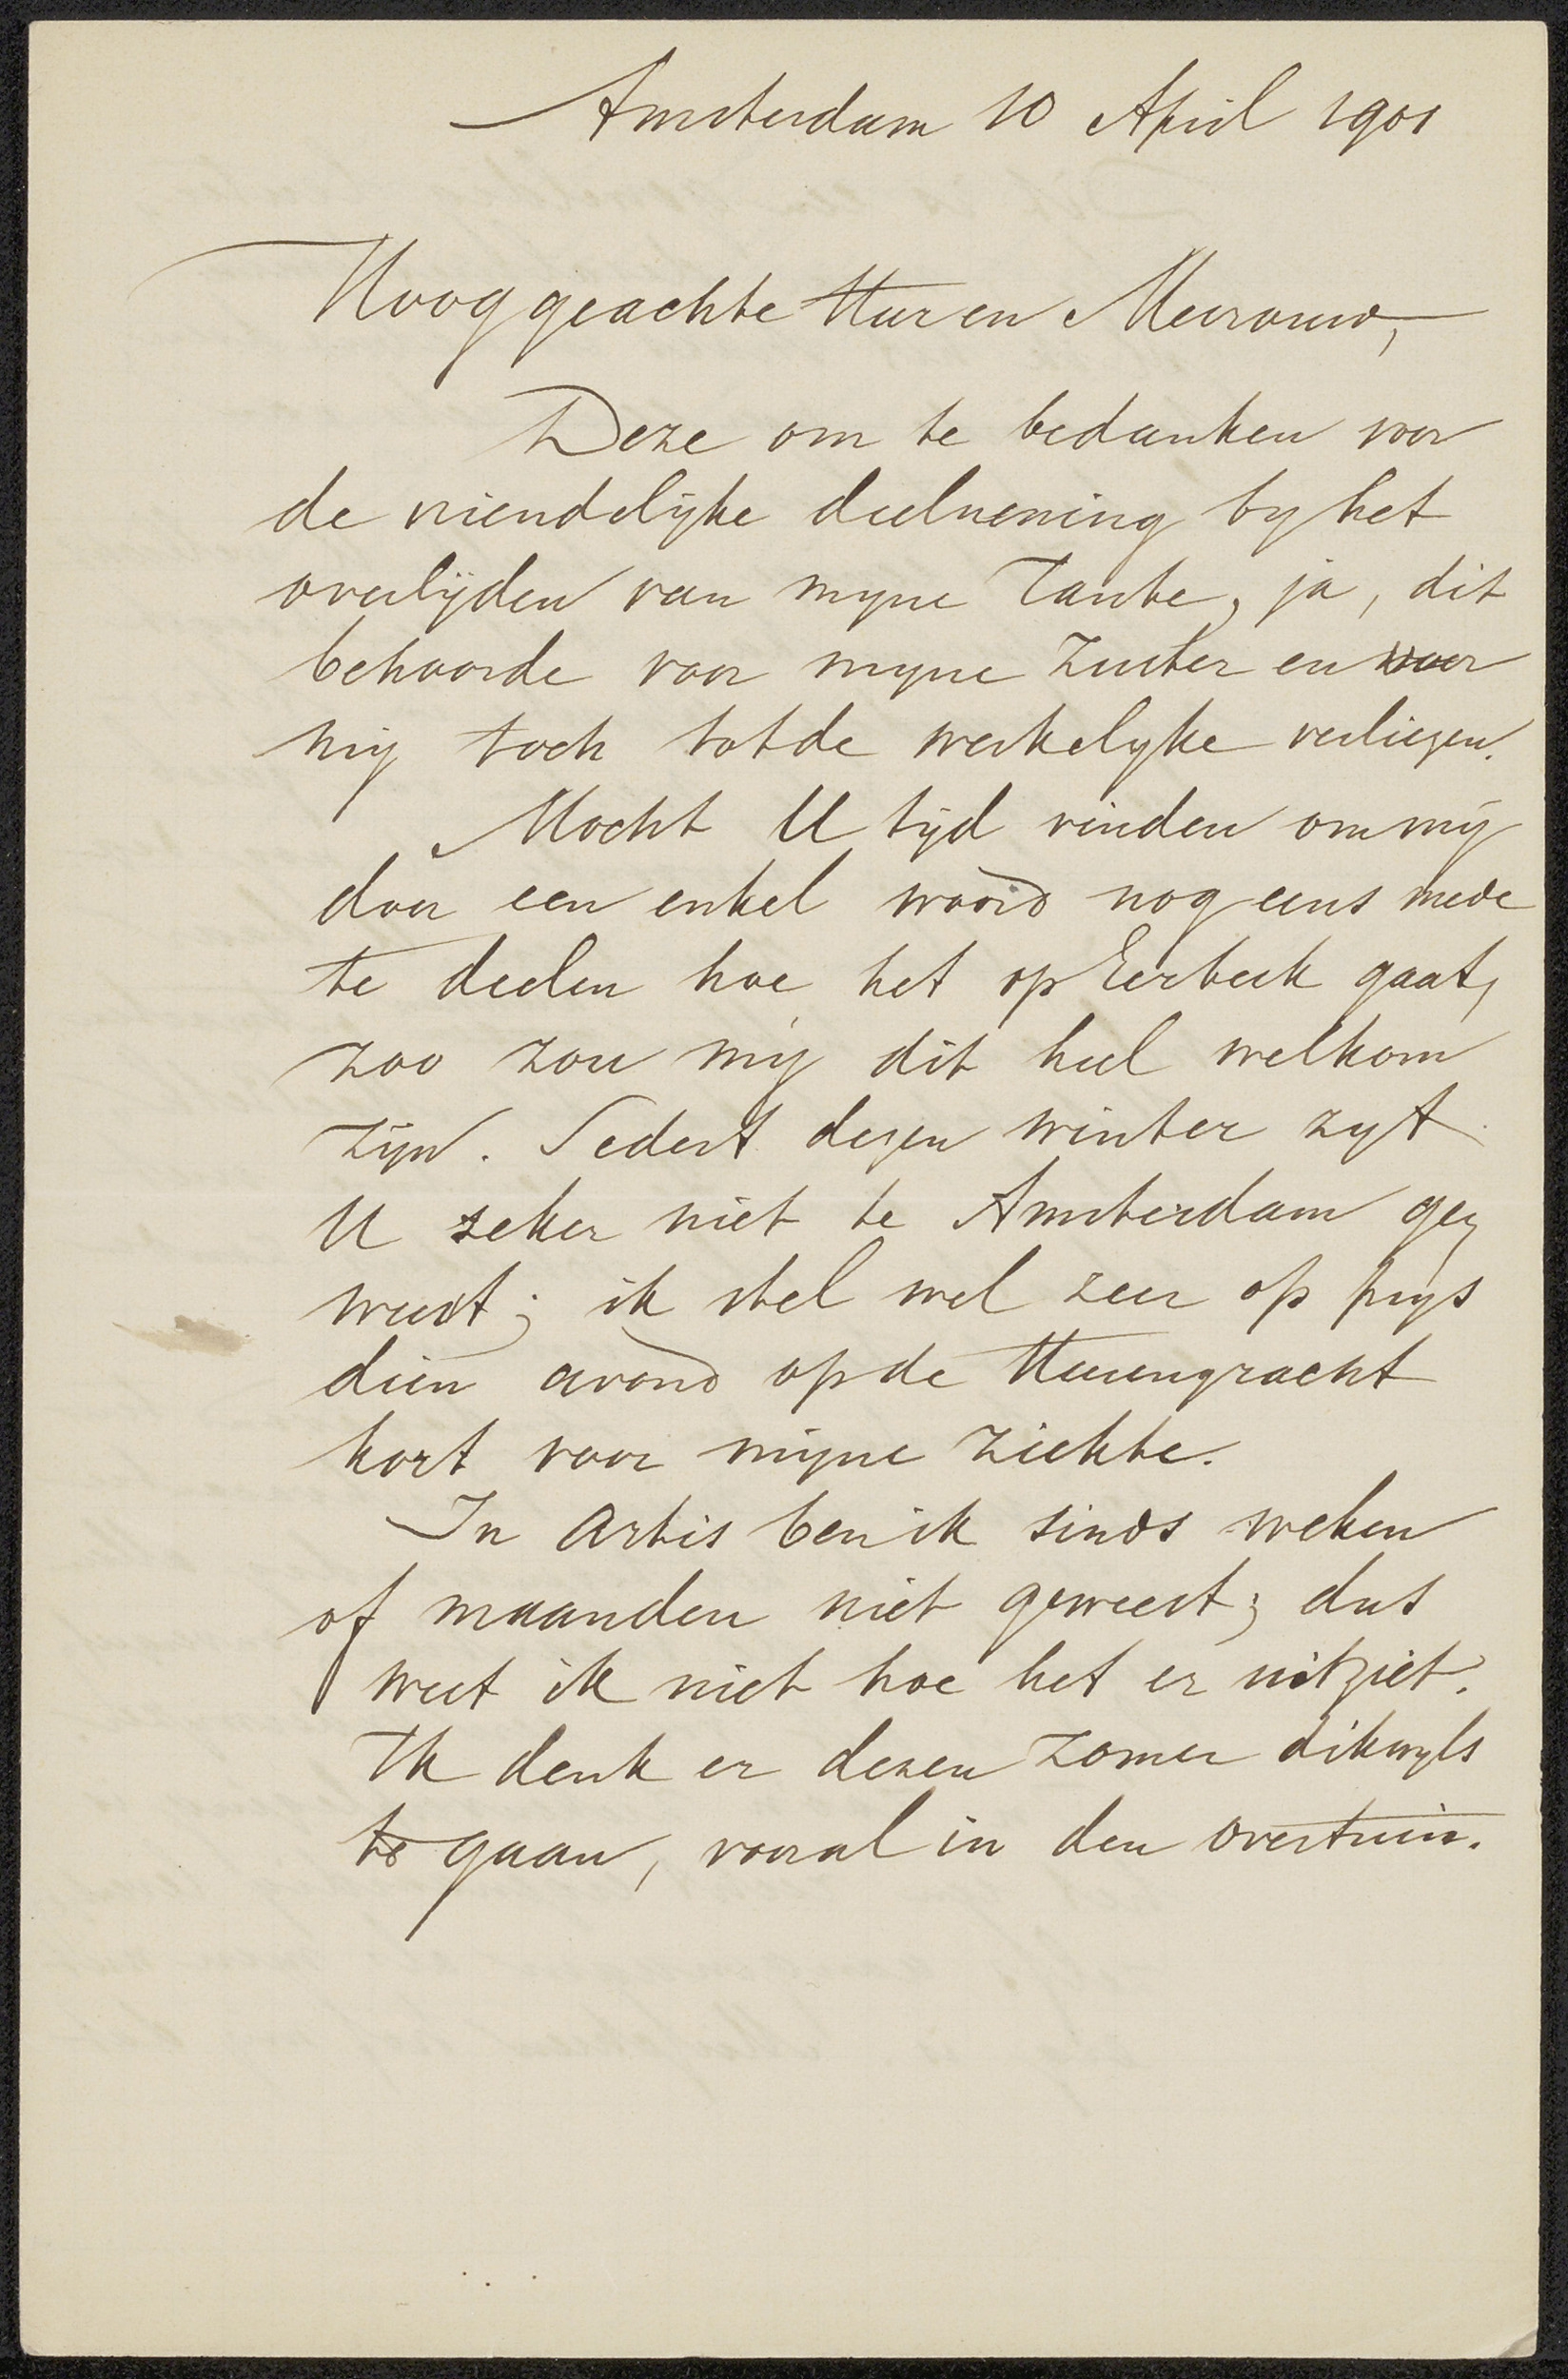 Amsterdam 10 April 1901
Hooggeachte Heer en Mevrouw,
Deze om te bedanken voor
de vriendelijke deelneming by het
overlijden van myne Tante, ja, dit
behoorde voor myne Zuster en voor
mij toch tot de werkelyke verliezen.
Mocht U tijd vinden om mij
door een enkel woord nog eens mede
te deelen hoe het op Eerbeek gaat,
zoo zou mij dit heel welkom
zijn. Sedert dezen winter zyt
U zeker niet te Amsterdam ge,
weest; ik stel wel zeer op prys
dien avond op de Heerengracht
kort voor mijne ziekte.
In Artis ben ik sinds weken
of maanden niet geweest; dus
weet ik niet hoe het er uitziet.
Ik denk er dezen zomer dikwyls
te gaan, vooral in den overtuin.